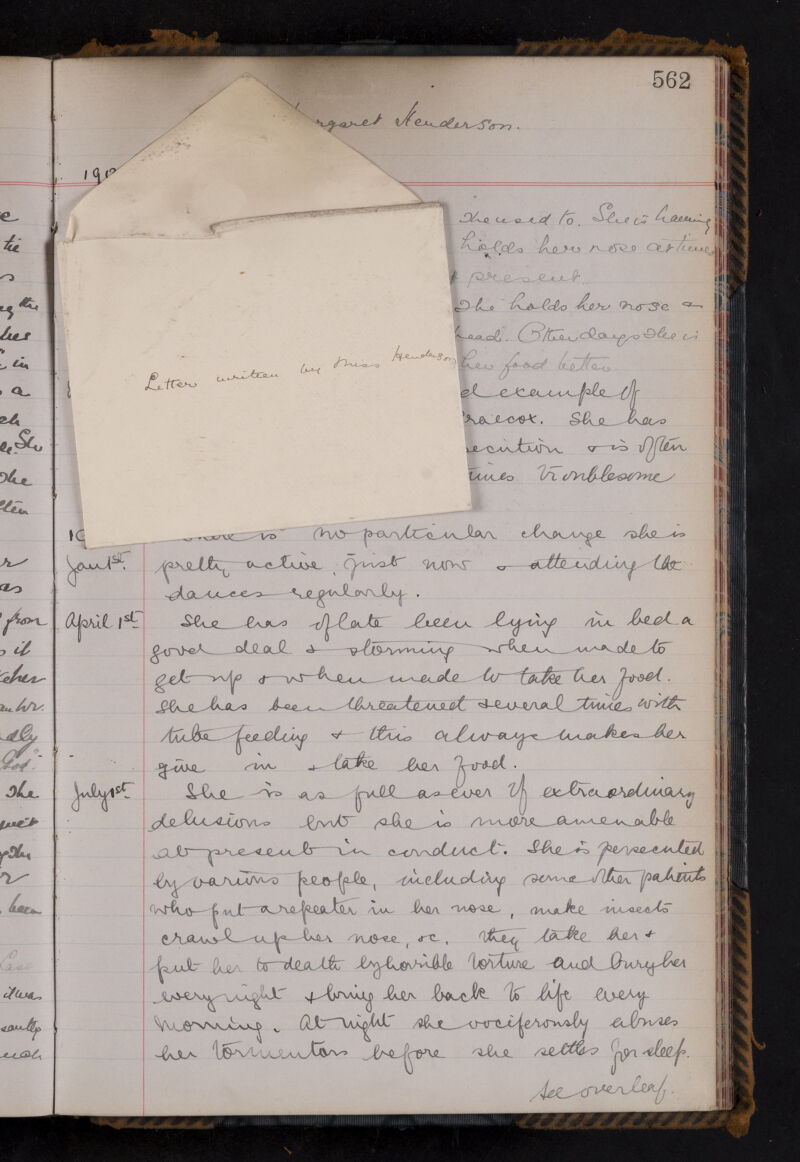 562
Margaret Henderson.
190
she used to. She is having
holds her nose at times
present
she holds her nose &
head. Other days she is
her food better
Letter written by Miss Henderson
d example of
raecox. She has
secution & is often
times troublesome
There is no particular change she is
Jan 1st. pretty active just now & attending the
dances regularly.
April 1st She has of late been lying in bed a
good deal & storming when made to
get up & when made to take her food.
She has been threatened several times with
tube feeding & this always makes her
give in & take her food.
July 1st. She is as full as ever of extraordinary
delusions but she is more amenable
at present in conduct. She is persecuted
by various people, including some other patients
who put a repeater in her nose, make insects
crawl up her nose, &c. they take her &
put her to death by horrible torture and bury her
every night & bring her back to life every
morning. At night she vociferously abuses
her tormentors before she settles for sleep.
See overleaf.